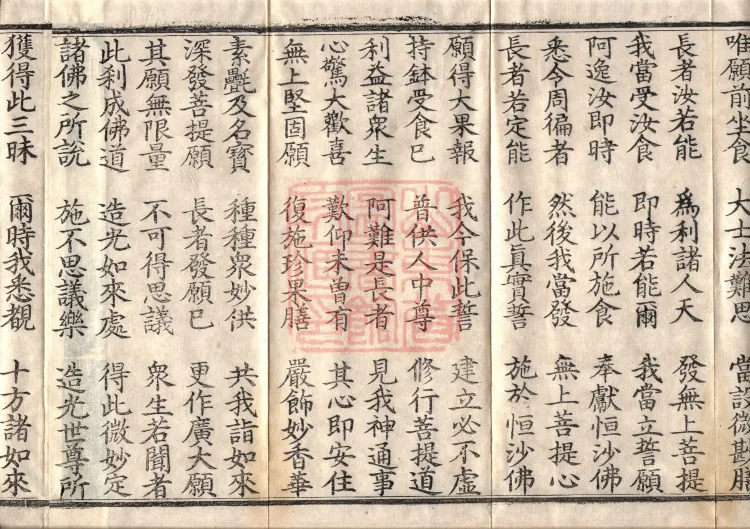 唯願前坐食 大士法難思 當設微尠膳
長者汝若能 為利諸人天 發無上菩提
我當受汝食 即時若能爾 我當立誓願
阿逸汝即時 能以所施食 奉獻恒沙佛
悉令周徧者 然後我當發 無上菩提心
長者若定能 作此真實誓 施於恒沙佛
願得大果報 我今保此誓 建立必不虛
持鉢受食已 普供人中尊 修行菩提道
利益諸衆生 阿難是長者 見我神通事
心驚大歡喜 歎仰未曾有 其心即安住
無上堅固願 復施珍果膳 嚴飾妙香華
素㲲及名寶 種種衆妙供 共我詣如來
深發菩提願 長者發願已 更作廣大願
其願無限量 不可得思議 衆生若聞者
此刹成佛道 造光如來處 得此微妙定
諸佛之所說 施不思議樂 造光世尊所
獲得此三昧 爾時我悉覩 十方諸如來